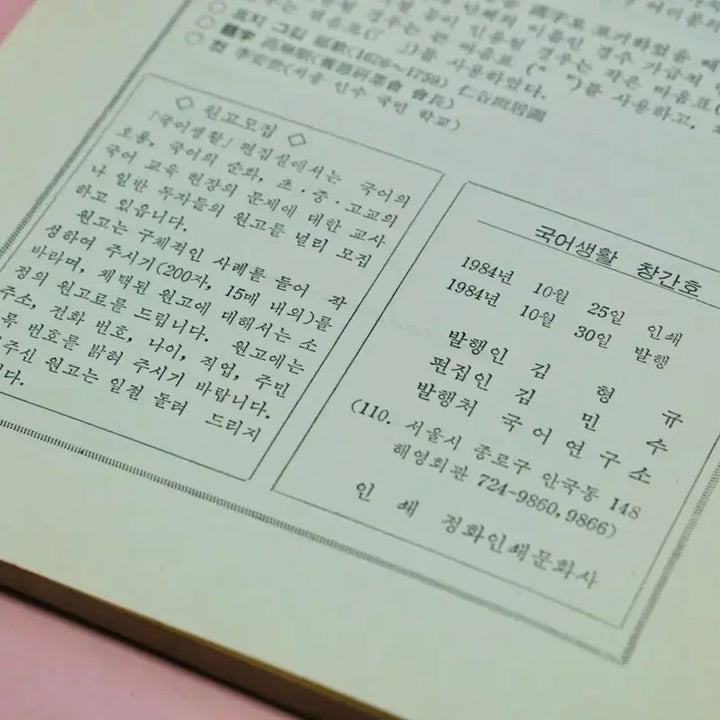 표지 그림 鄭敾(1676~1759) 仁谷幽居圖
(서울 인수 국민 학교)
를 사용하였다.
◇ 원고모집 ◇
「국어생활」 편집실에서는 국어의
오용, 국어의 순화, 초·중·고교의
국어 교육 현장의 문제에 대한 교사
나 일반 독자들의 원고를 널리 모집
하고 있읍니다.
원고는 구체적인 사례를 들어 작
성하여 주시기(200자, 15매 내외)를
바라며, 채택된 원고에 대해서는 소
정의 원고료를 드립니다. 원고에는
주소, 전화 번호, 나이, 직업, 주민
록 번호를 밝혀 주시기 바랍니다.
주신 원고는 일절 돌려 드리지
니다.
국어생활 창간호
1984년 10월 25일 인쇄
1984년 10월 30일 발행
발행인 김 형 규
편집인 김 민 수
발행처 국어연구소
(110. 서울시 종로구 안국동 148
해영회관 724-9860, 9866)
인 쇄 정화인쇄문화사